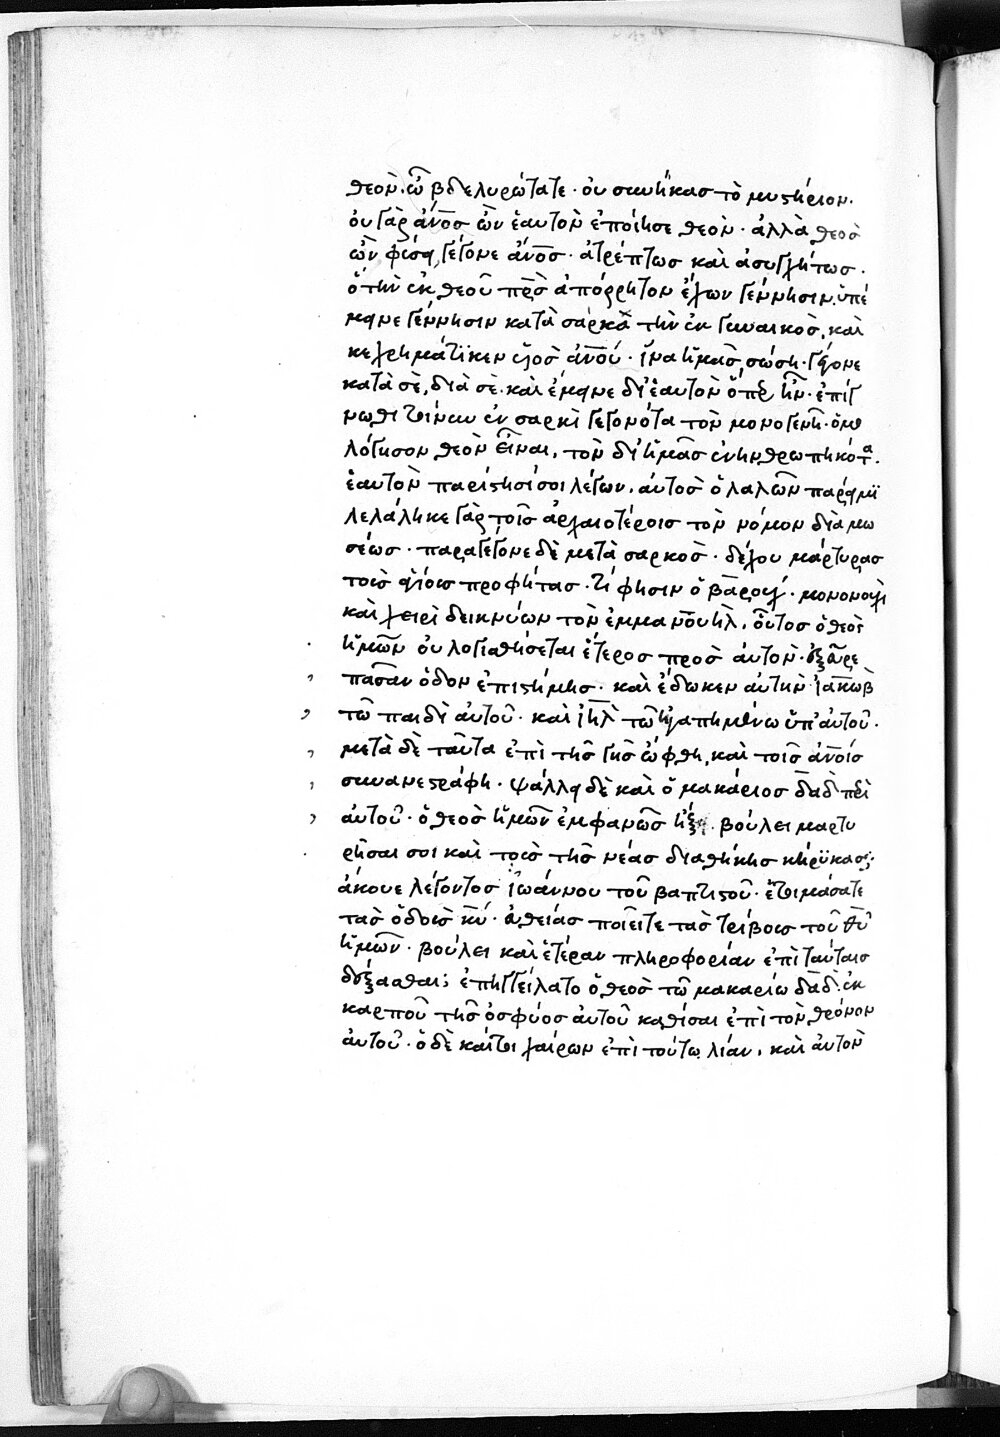 θεὸν· ὦ βδελυρώτατε· ὀυ συνῆκασ τὸ μυστήριον·
ὀυ γὰρ ἄνο̅σ ὢν ἑαυτὸν ἐποίησε θεὸν· ἀλλὰ θεὸσ
ὢν φύσει, γέγονε ἄνο̅σ· ἀτρέπτωσ καὶ ἀσυγχύτωσ·
ὁ τὴν ἐκ θεοῦ πρ̅σ ἀπόρρητον ἔχων γέννησιν, ὑπέ
μεινε γέννησιν κατὰ σάρκα τὴν ἐκ γυναικὸσ, καὶ
κεχρημάτϊκεν υἱὸσ ἀνο̅υ· ἵνα ἡμᾶσ σώσῃ· γέγονε
κατὰ σὲ, διὰ σὲ· καὶ ἔμεινε δι' ἑαυτὸν ὅπερ ἦν· ἐπίγ
νωθι τοίνυν ἐν σαρκὶ γεγονότα τὸν μονογενῆ· ὁμο
λόγησον θεὸν εἶναι, τὸν δι' ἡμᾶσ ἐνηνθρωπηκότα·
ἑαυτὸν παρίστησί σοι λέγων, ἀυτὸσ ὁ λαλῶν πάρειμϊ
λελάληκε γὰρ τοῖσ ἀρχαιοτέροισ τὸν νόμον διὰ μω
σέωσ· παραγέγονε δὲ μετὰ σαρκὸσ· δέχου μάρτυρασ
τοὺσ ἁγίουσ προφήτασ· τί φησιν ὁ βαροὺχ· μονονουχὶ
καὶ χειρὶ δεικνύων τὸν ἐμμανουὴλ, ὅυτοσ ὁ θεὸσ
ἡμῶν ὀυ λογισθήσεται ἕτεροσ πρὸσ ἀυτὸν· ἐξεῦρε
πᾶσαν ὁδὸν ἐπιστήμησ· καὶ ἔδωκεν αὐτὴν ϊακὼβ
τῶ παιδὶ ἀυτοῦ· καὶ ι̅η̅λ τῶ ἠγαπημένω ὑπ' ἀυτοῦ·
μετὰ δὲ ταῦτα ἐπὶ τῆσ γῆσ ὤφθη, καὶ τοῖσ ἀνο̅ίσ
συνανεστράφη· ψάλλει δὲ καὶ ὁ μακάριοσ δα̅δ περὶ
ἀυτοῦ· ὁ θεὸσ ἡμῶν ἐμφανῶσ ἥξει· βούλει μαρτυ
ρῆσαι σοι καὶ τοὺσ τῆσ νέασ διαθήκησ κήρϋκασ;
ἄκουε λέγοντοσ ϊωάννου τοῦ βαπτιστοῦ· ἑτοιμάσατε
τὰσ ὁδοὺσ κ̅υ· ἐυθείασ ποιεῖτε τὰσ τρίβουσ τοῦ θ̅υ
ἡμῶν· βούλει καὶ ἑτέραν πληροφορίαν ἐπὶ ταύταισ
δέξασθαι; ἐπηγγείλατο ὁ θεὸσ τῶ μακαρίω δα̅δ· ἐκ
καρποῦ τῆσ ὀσφύοσ ἀυτοῦ καθίσαι ἐπὶ τὸν θρόνον
ἀυτοῦ· ὁ δὲ καίτοι χαίρων ἐπὶ τούτω λίαν, καὶ ἀυτὸν